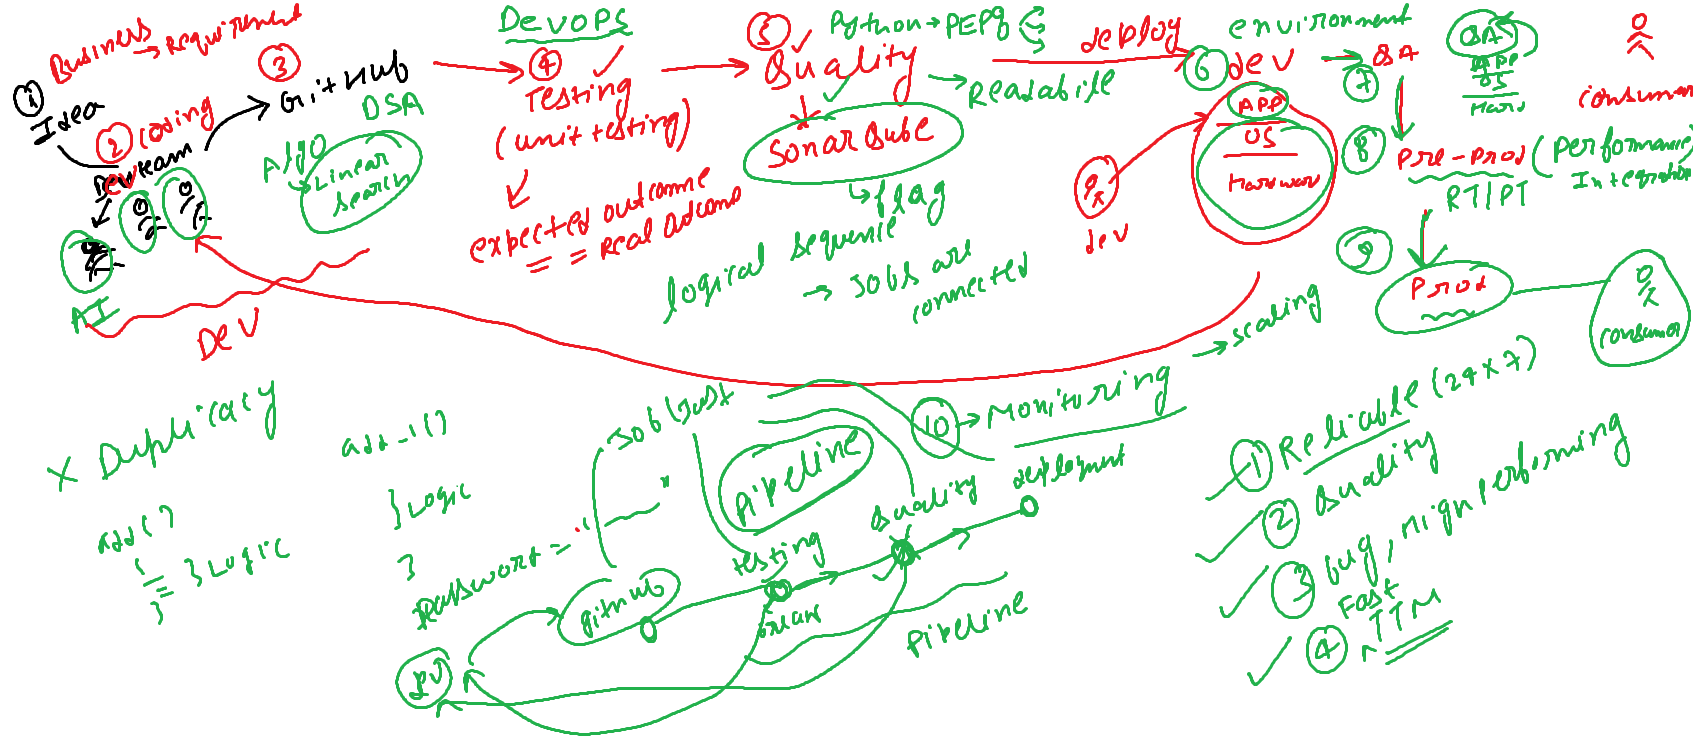 DevOPS
Business
→ Requirement
① Idea
② Coding
Dev team
③
GitHub
DSA
Algo
→ Linear
Search
AI
Dev
④ Testing
(unit testing)
expected outcome
= = Real outcome
⑤ Quality
Python → PEP8
→ Readabile
SonarQube
→ flag
logical sequence
→ Jobs are
connected
deploy
environment
⑥ dev → QA
⑦
APP
OS
Hardware
dev
QA
APP
OS
Hard
consumer
⑧ Pre-Prod (Performance,
Integration
RT/PT
⑨
Prod
consumer
X Duplicacy
add()
{
= } Logic
}
add_1()
} Logic
}
Password = "
"
Job
Pipeline
⑩ → Monitoring
→ scaling
github
testing
Quality
deployment
Pipeline
① Reliable (24x7)
② Quality
③ bug, high performing
Fast
④ TTM